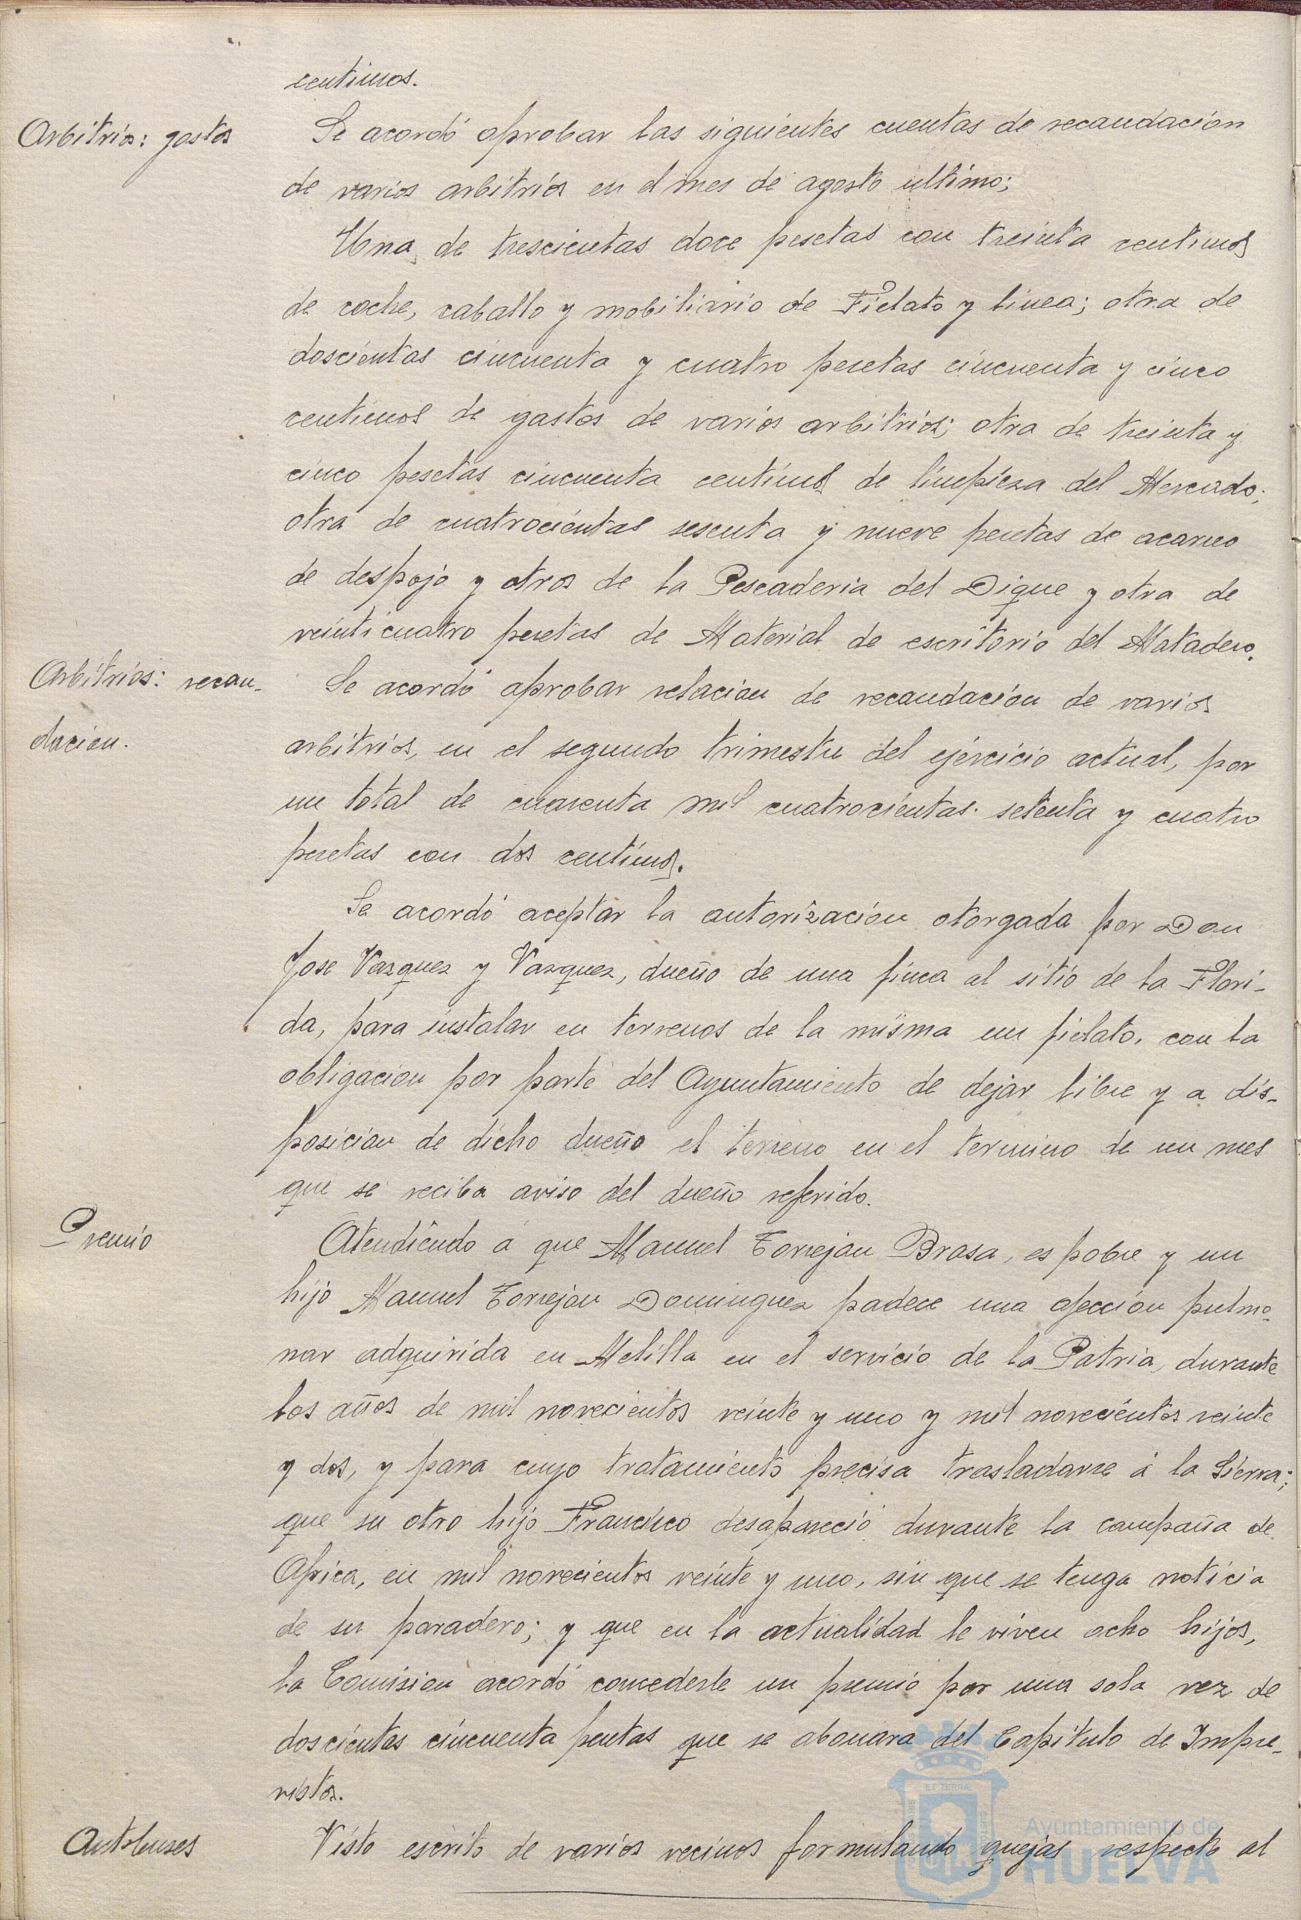 centimos.
Arbitrios: gastos
Se acordó aprobar las siguientes cuentas de recaudación
de varios arbitrios en el mes de agosto ultimo;
Una de trescientas doce pesetas con treinta centimos
de coche, caballo y mobiliario de Fielato y linea; otra de
doscientas cincuenta y cuatro pesetas cincuenta y cinco
centimos de gastos de varios arbitrios; otra de treinta y
cinco pesetas cincuenta centimos de limpieza del Mercado;
otra de cuatrocientas sesenta y nueve pesetas de acarreo
de despojo y otros de la Pescaderia del Dique y otra de
veinticuatro pesetas de Material de escritorio del Matadero.
Arbitrios: recau-
dacion.
Se acordó aprobar relacion de recaudación de varios
arbitrios, en el segundo trimestre del ejercicio actual, por
un total de cuarenta mil cuatrocientas setenta y cuatro
pesetas con dos centimos.
Se acordó aceptar la autorización otorgada por Don
Jose Vazquez y Vazquez, dueño de una finca al sitio de la Flori-
da, para instalar en terrenos de la misma un fielato, con la
obligacion por parte del Ayuntamiento de dejar libre y a dis-
posicion de dicho dueño el terreno en el termino de un mes
que se reciba aviso del dueño referido.
Premio
Atendiendo á que Manuel Torrejon Brasa, es pobre y un
hijo Manuel Torrejon Dominguez padece una afección pulmo-
nar adquirida en Melilla en el servicio de la Patria, durante
los años de mil novecientos veinte y uno y mil novecientos veinte
y dos, y para cuyo tratamiento precisa trasladarse á la Sierra;
que su otro hijo Francisco desapareció durante la campaña de
Africa, en mil novecientos veinte y uno, sin que se tenga noticia
de su paradero; y que en la actualidad le viven ocho hijos,
la Comision acordó concederle un premio por una sola vez de
doscientas cincuenta pesetas que se abonara del Capitulo de Impre-
vistos.
Autobuses
Visto escrito de varios vecinos formulando quejas respecto al
Ayuntamiento de
HUELVA